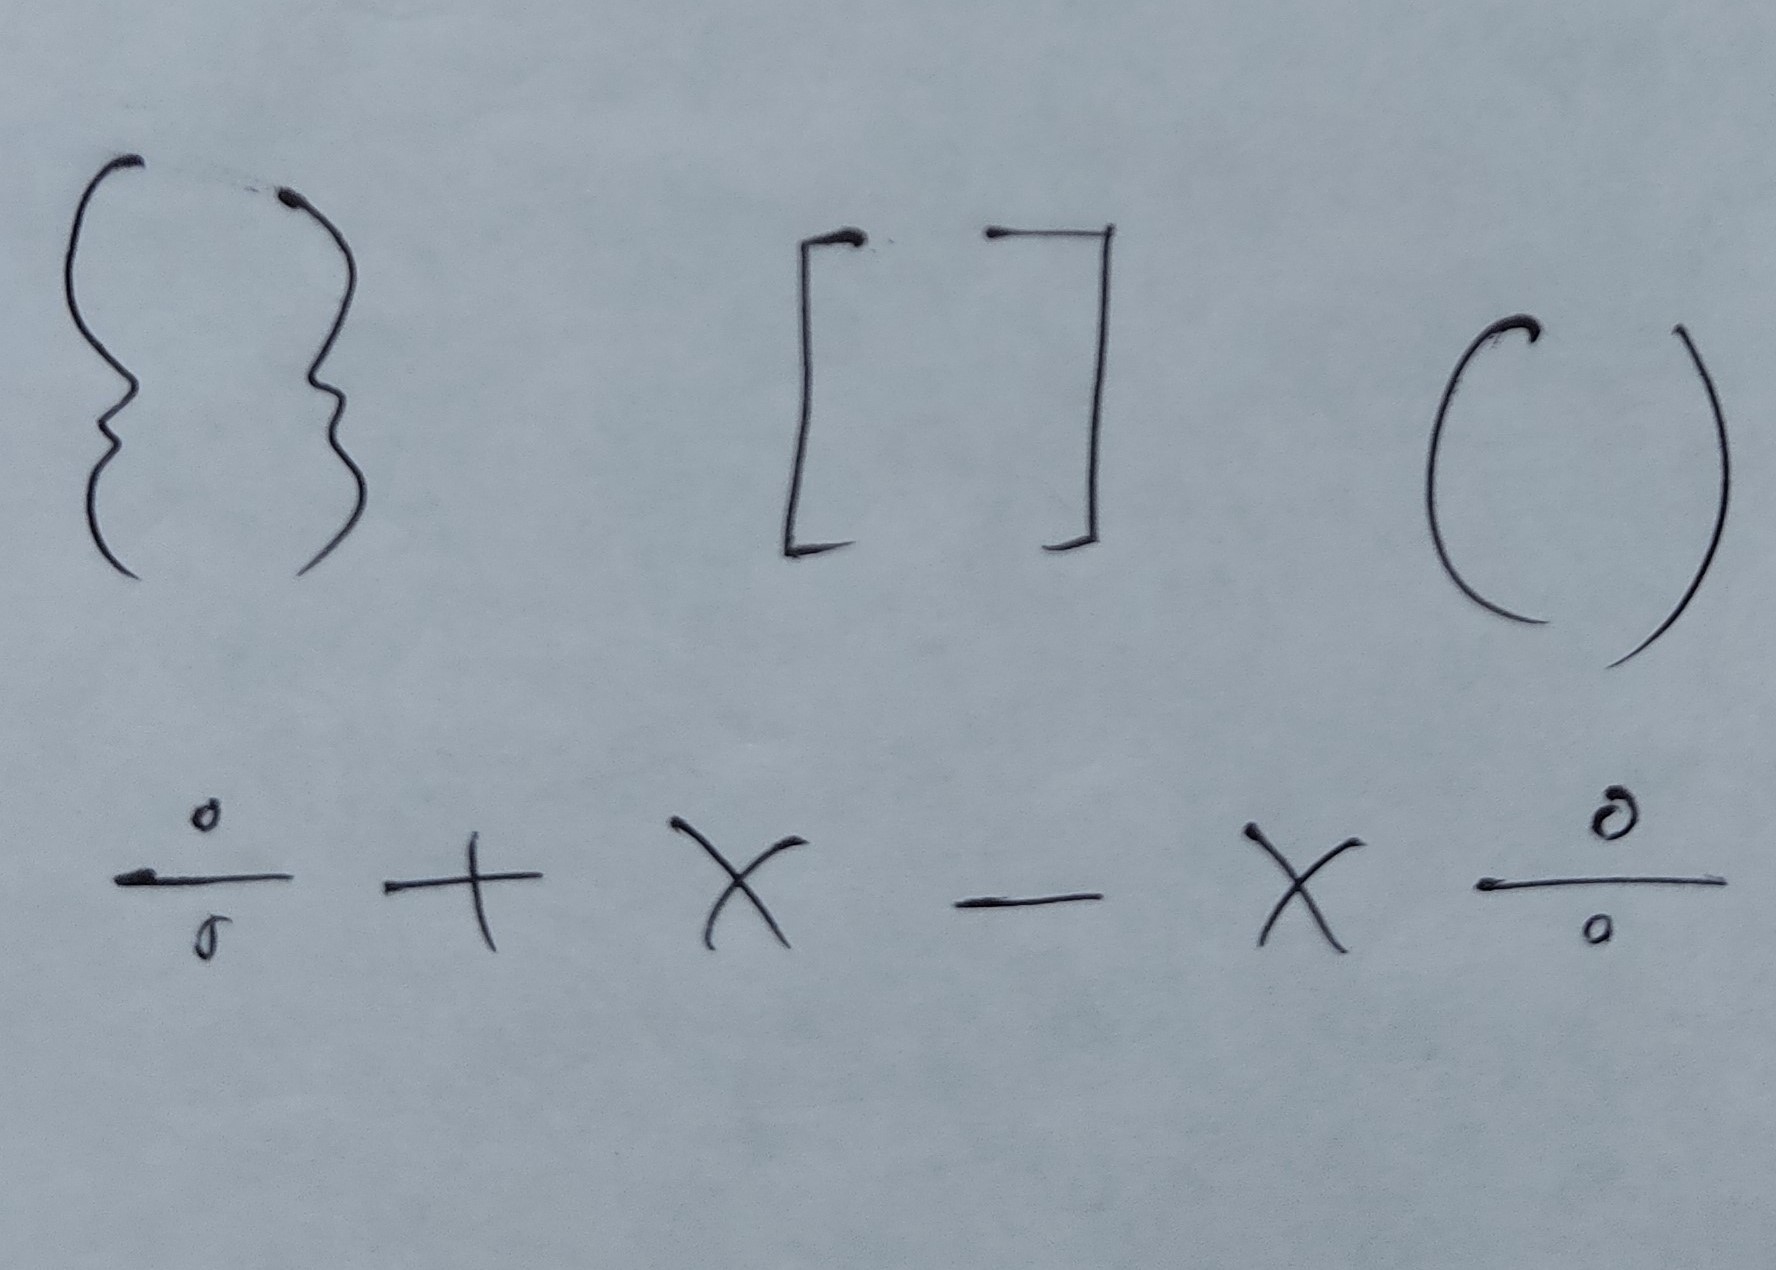 { } [ ] ( )
÷ + × - × ÷